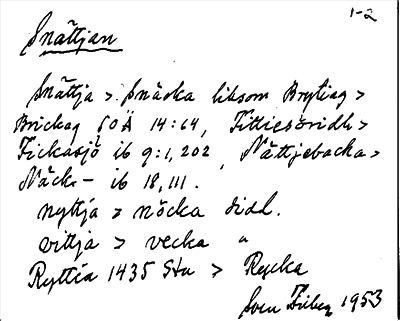 1-2
Snättjan
Snättja > Snäcka liksom Brytiag >
Brickag SOÄ 14:64, Fittiesöridh >
Fickasjö ib 9:1,202, Nättjebacka >
Näck- ib 18,111.
nyttja > nöcka dial.
vittja > vecka "
Ryttia 1435 Stu > Rycka
Sven 1953